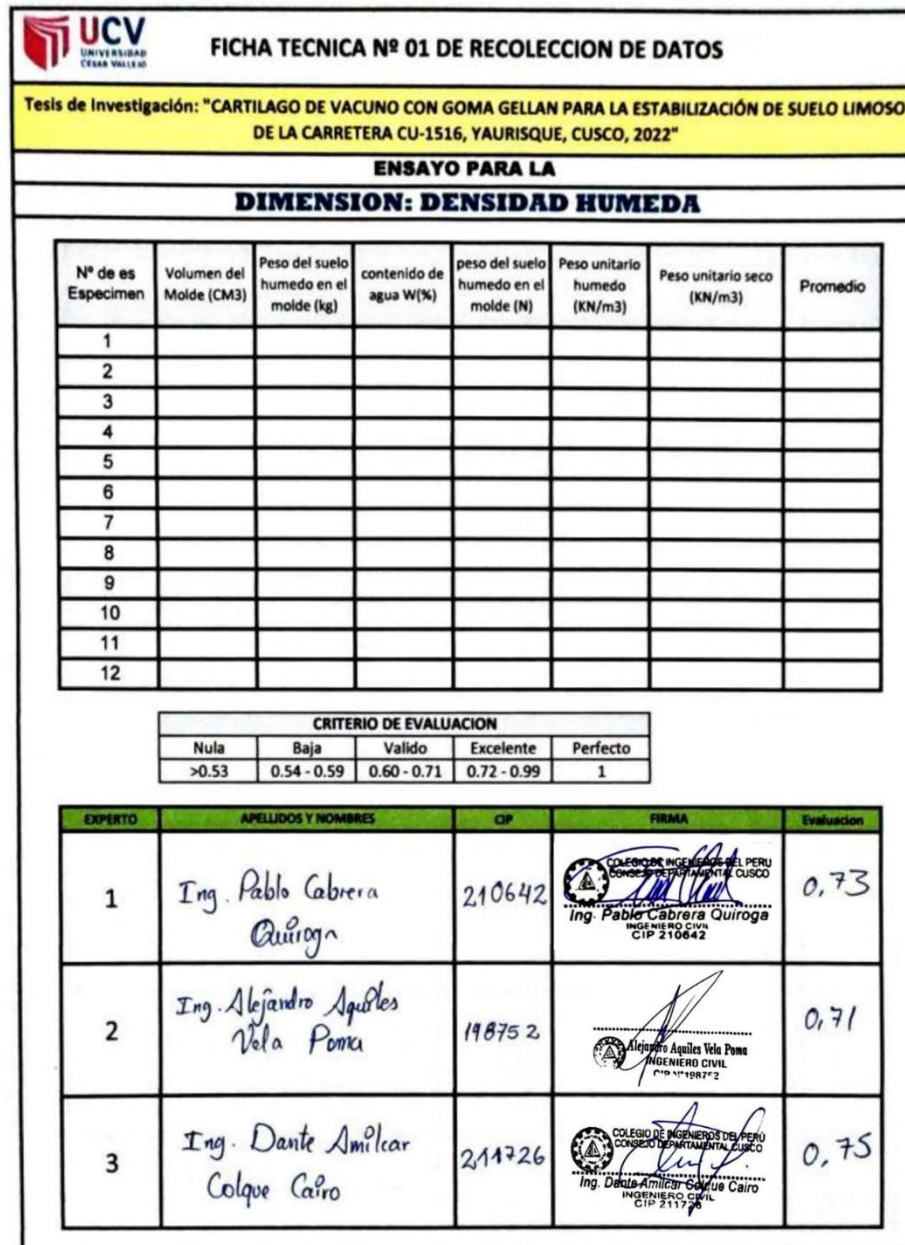 UCV
UNIVERSIDAD
CÉSAR VALLEJO
FICHA TECNICA Nº 01 DE RECOLECCION DE DATOS
Tesis de Investigación: "CARTILAGO DE VACUNO CON GOMA GELLAN PARA LA ESTABILIZACIÓN DE SUELO LIMOSO
DE LA CARRETERA CU-1516, YAURISQUE, CUSCO, 2022"
ENSAYO PARA LA
DIMENSION: DENSIDAD HUMEDA
Nº de es Especimen | Volumen del Molde (CM3) | Peso del suelo humedo en el molde (kg) | contenido de agua W(%) | peso del suelo humedo en el molde (N) | Peso unitario humedo (KN/m3) | Peso unitario seco (KN/m3) | Promedio
1
2
3
4
5
6
7
8
9
10
11
12
CRITERIO DE EVALUACION
Nula | Baja | Valido | Excelente | Perfecto
>0.53 | 0.54 - 0.59 | 0.60 - 0.71 | 0.72 - 0.99 | 1
EXPERTO | APELLIDOS Y NOMBRES | CIP | FIRMA | Evaluacion
1 | Ing. Pablo Cabrera Quiroga | 210642 | COLEGIO DE INGENIEROS DEL PERU CONSEJO DEPARTAMENTAL CUSCO Ing. Pablo Cabrera Quiroga INGENIERO CIVIL CIP 210642 | 0,73
2 | Ing. Alejandro Aquiles Vela Poma | 198752 | Alejandro Aquiles Vela Poma INGENIERO CIVIL CIP Nº198752 | 0,71
3 | Ing. Dante Amilcar Colque Cairo | 211726 | COLEGIO DE INGENIEROS DEL PERÚ CONSEJO DEPARTAMENTAL CUSCO Ing. Dante Amilcar Colque Cairo INGENIERO CIVIL CIP 211726 | 0,75